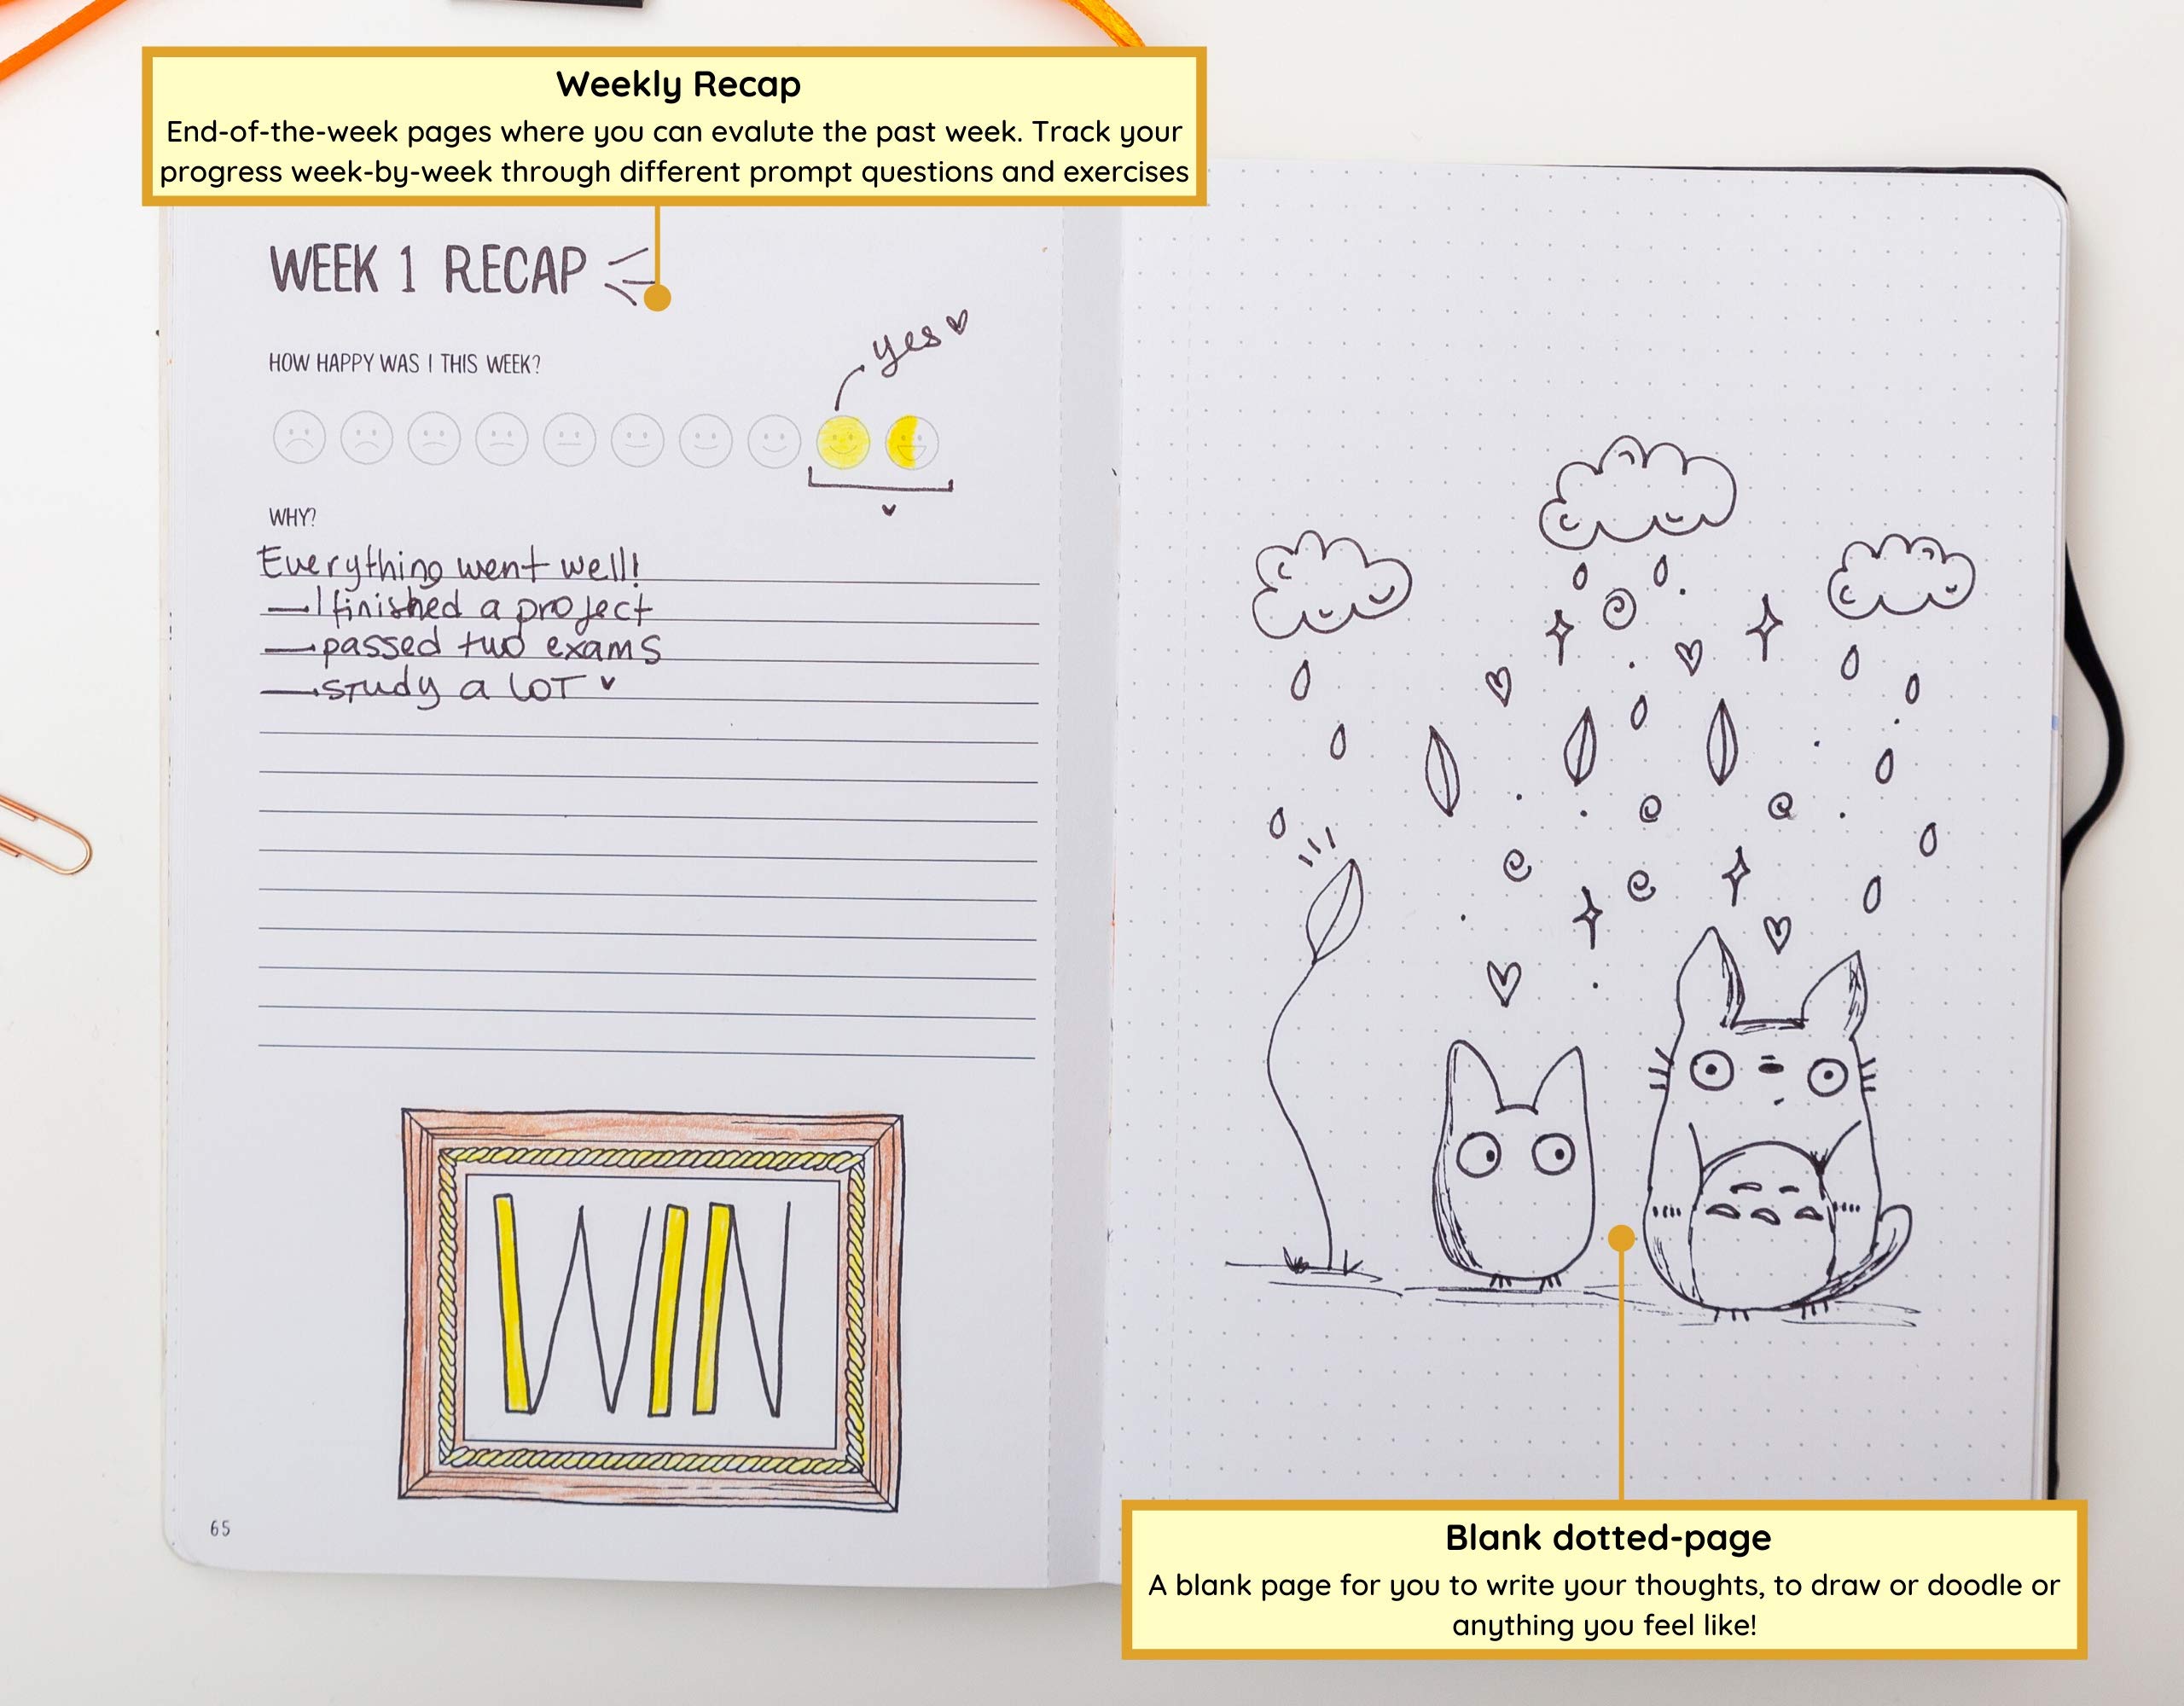 Weekly Recap
End-of-the-week pages where you can evalute the past week. Track your
progress week-by-week through different prompt questions and exercises
WEEK 1 RECAP
HOW HAPPY WAS I THIS WEEK?
yes
WHY?
Everything went well!
—I finished a project
—passed two exams
—study a LOT
WIN
65
Blank dotted-page
A blank page for you to write your thoughts, to draw or doodle or
anything you feel like!